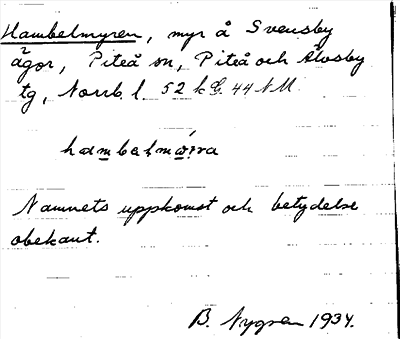 Hambelmyren, myr å Svensby
ägor, Piteå sn, Piteå och Älvsby
tg, Norrb. l. 52 k G. 44 N M.
Namnets uppkomst och betydelse
obekant.
B. Nygren 1934.